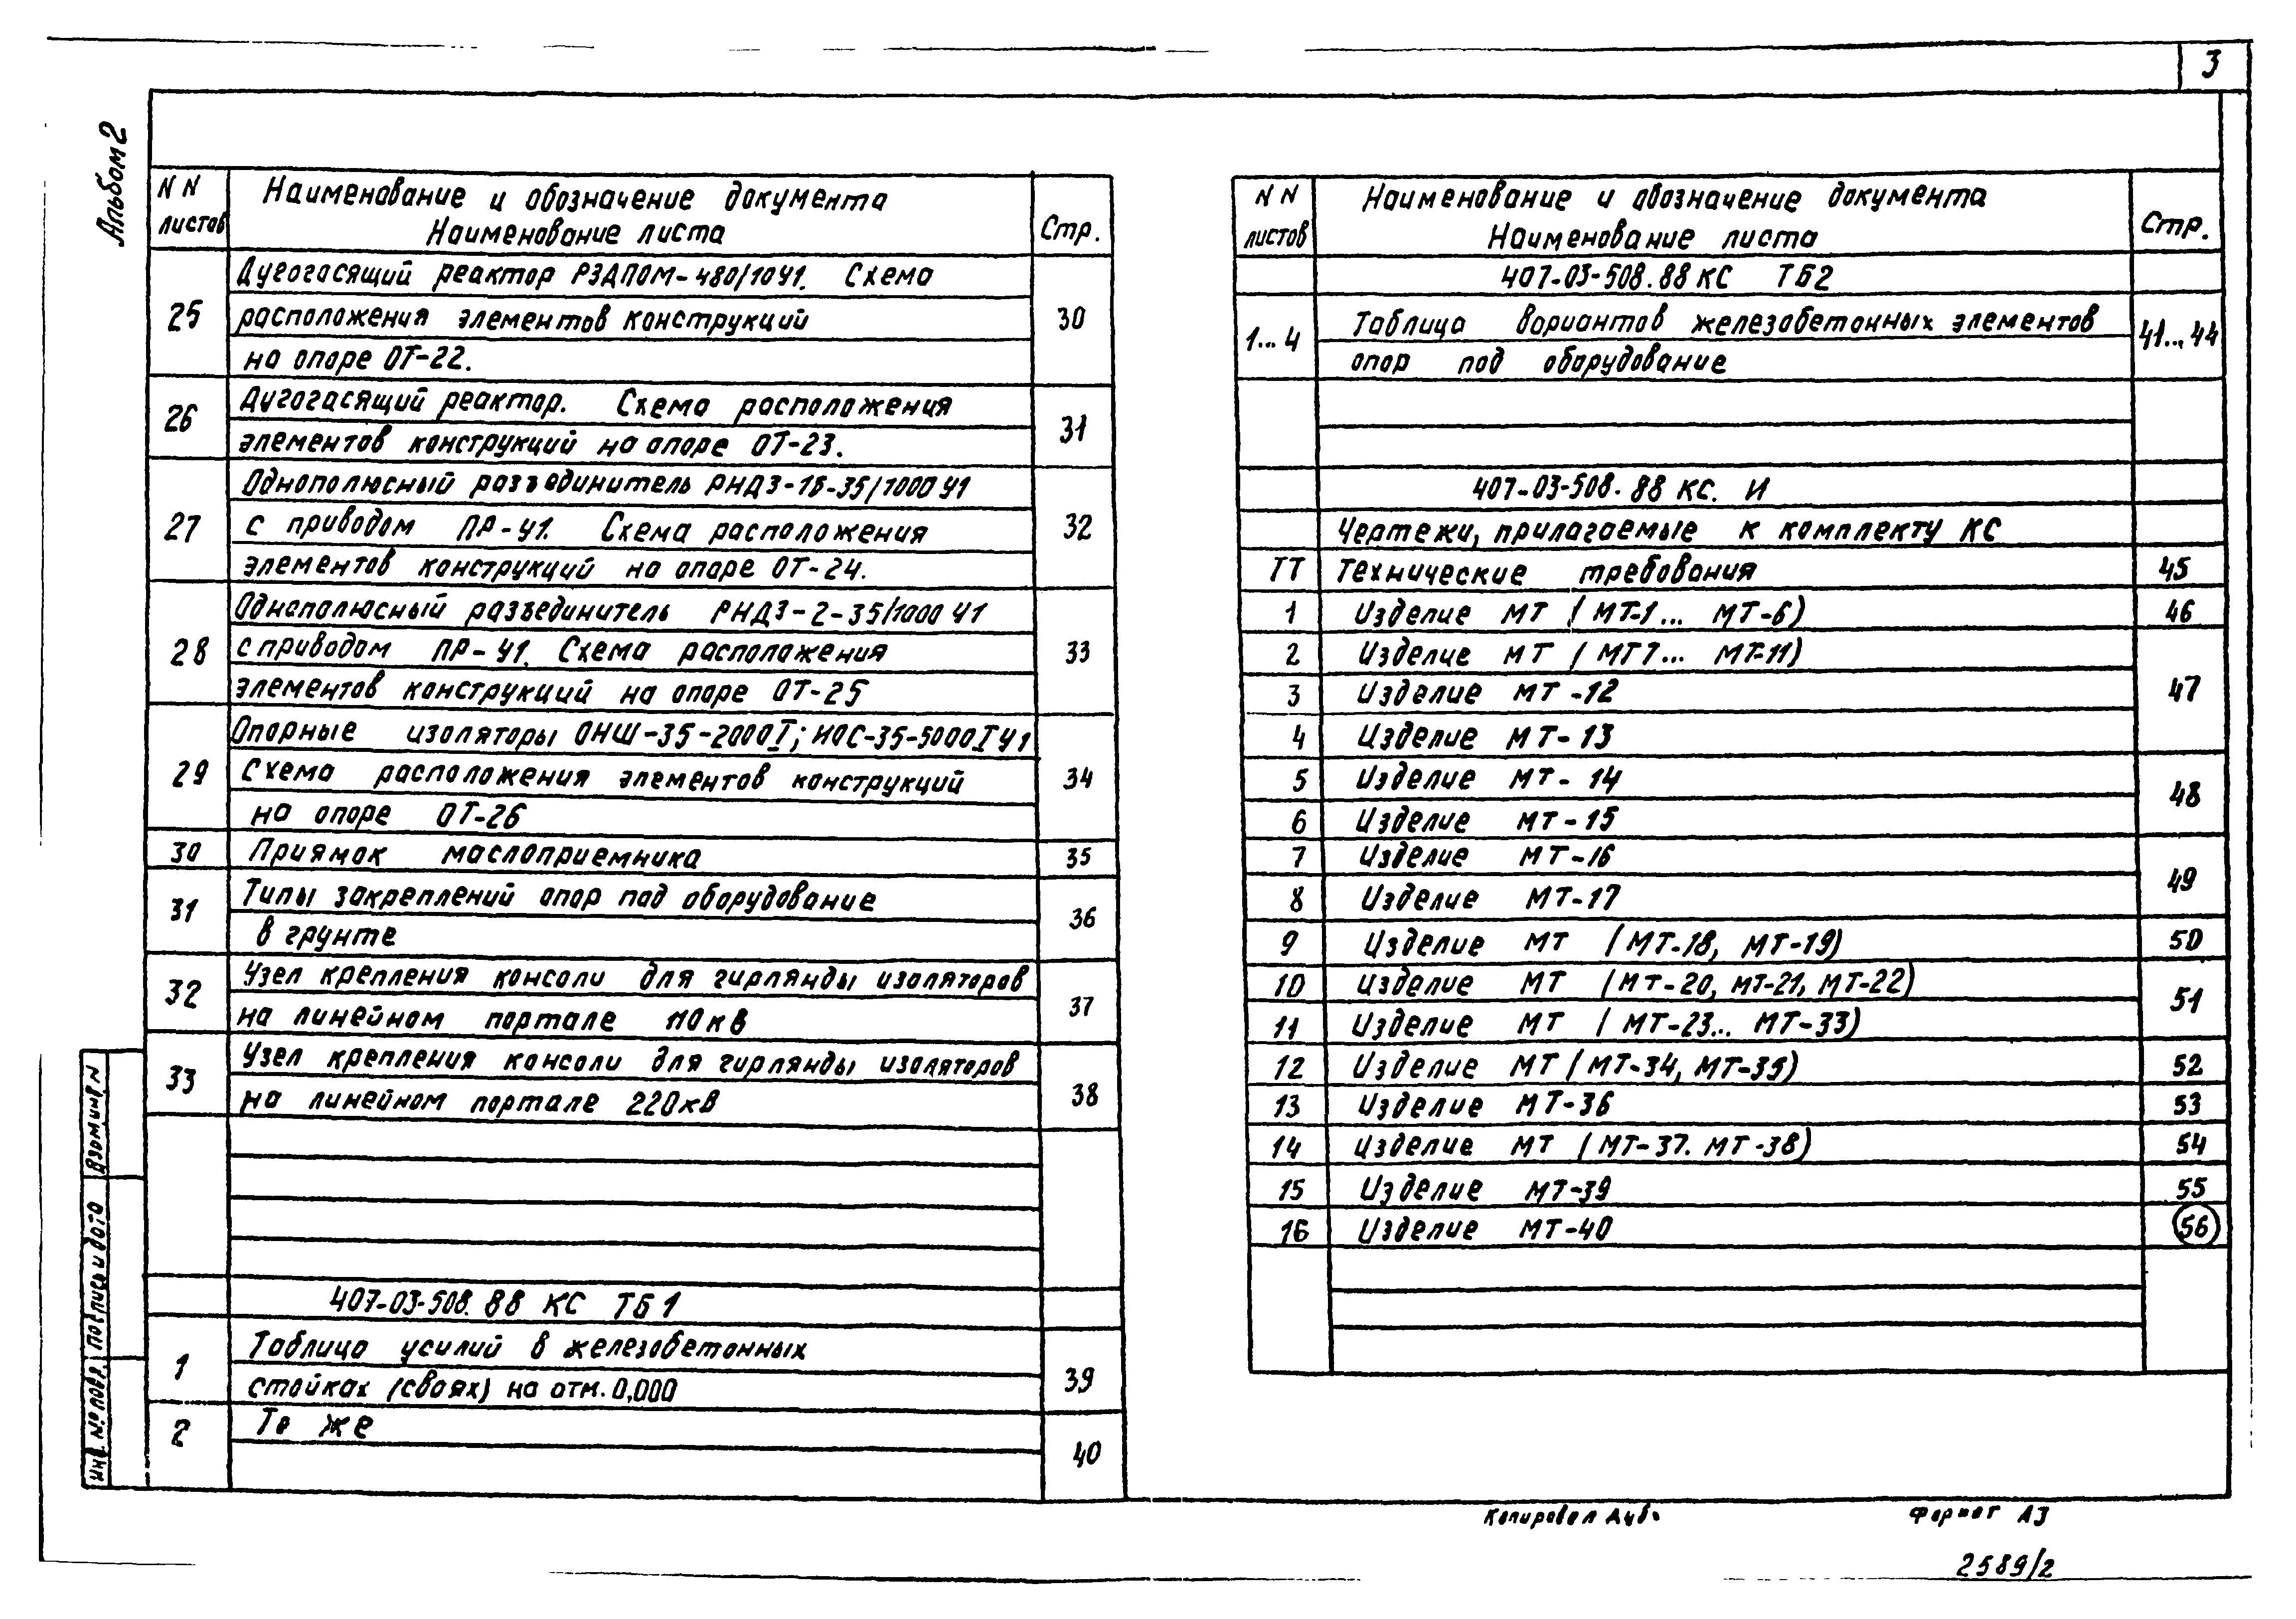 3
Альбом 2
NN листов
Наименование и обозначение документа
Наименование листа
Стр.
25
Дугогасящий реактор РЗДПОМ-480/10У1. Схема
расположения элементов конструкций
на опоре ОТ-22.
30
26
Дугогасящий реактор. Схема расположения
элементов конструкций на опоре ОТ-23.
31
27
Однополюсный разъединитель РНДЗ-1б-35/1000 У1
с приводом ПР-У1. Схема расположения
элементов конструкций на опоре ОТ-24.
32
28
Однополюсный разъединитель РНДЗ-2-35/1000 У1
с приводом ПР-У1. Схема расположения
элементов конструкций на опоре ОТ-25
33
29
Опорные изоляторы ОНШ-35-2000I; ИОС-35-5000I У1
Схема расположения элементов конструкций
на опоре ОТ-26
34
30
Приямок маслоприемника
35
31
Типы закреплений опор под оборудование
в грунте
36
32
Узел крепления консоли для гирлянды изоляторов
на линейном портале 110кв
37
33
Узел крепления консоли для гирлянды изоляторов
на линейном портале 220кВ
38
407-03-508.88 КС ТБ1
1
Таблица усилий в железобетонных
стойках (сваях) на отм. 0,000
39
2
То же
40
NN листов
Наименование и обозначение документа
Наименование листа
Стр.
407-03-508.88 КС ТБ2
1...4
Таблица вариантов железобетонных элементов
опор под оборудование
41...44
407-03-508.88 КС. И
Чертежи, прилагаемые к комплекту КС
ТТ Технические требования 45
1 Изделие МТ (МТ-1... МТ-6) 46
2 Изделие МТ (МТ7... МТ-11)
3 Изделие МТ-12 47
4 Изделие МТ-13
5 Изделие МТ-14 48
6 Изделие МТ-15
7 Изделие МТ-16 49
8 Изделие МТ-17
9 Изделие МТ (МТ-18, МТ-19) 50
10 Изделие МТ (МТ-20, МТ-21, МТ-22) 51
11 Изделие МТ (МТ-23... МТ-33)
12 Изделие МТ (МТ-34, МТ-35) 52
13 Изделие МТ-36 53
14 Изделие МТ (МТ-37. МТ-38) 54
15 Изделие МТ-39 55
16 Изделие МТ-40 56
Инв. № подл. Подпись и дата Взам инв N
Копировал Формат А3
2589/2